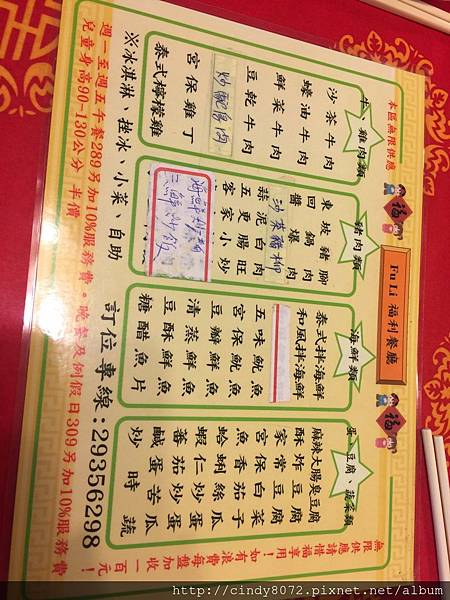 Fu Li 福利餐廳
本區無限供應
無限供應,請惜福享用!如有浪費每盤加收一百元!
牛、雞肉類
沙茶牛肉
蠔油牛肉
鮮菜牛肉
豆乾牛肉
炒醃鳥肉
宮保雞丁
泰式檸檬雞
豬肉類
東坡豬腳
回鍋肉
醬爆肉
沙茶豬柳
蒜泥白肉
五更腸旺
客家小炒
海鮮炒麵
三鮮炒飯
海鮮類
泰式拌海鮮
和風拌海鮮
五味魷魚
宮保魷魚
豆瓣鮮魚
清蒸鮮魚
豆酥鮮魚
糖醋魚片
蛋、豆腐、蔬菜類
麻辣大腸臭豆腐
酥炸豆腐
家常豆腐
宮保白菜
魚香茄子
蛤蜊絲瓜
蝦仁炒蛋
蕃茄炒蛋
鹹蛋苦瓜
炒時蔬
※冰淇淋、挫冰、小菜、自助
訂位專線:29356298
週一至週五午餐289另加10%服務費。晚餐及例假日309另加10%服務費
兒童身高90-130公分 半價
http://cindy8072.pixnet.net/album